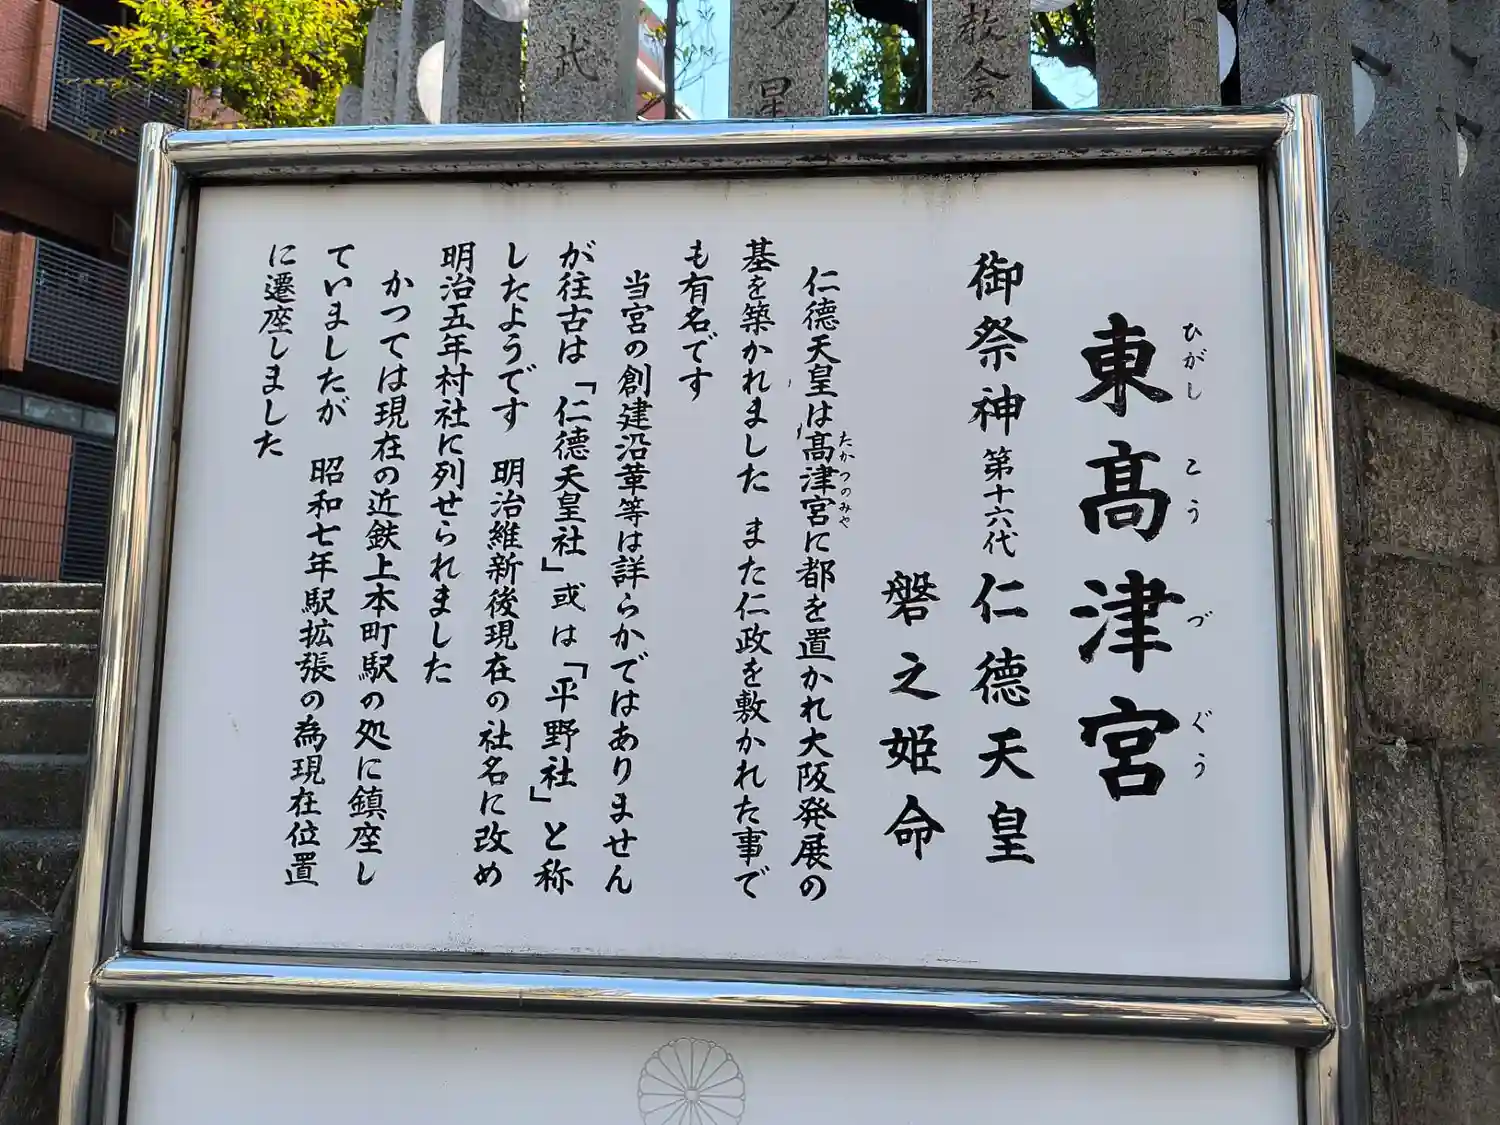 東高津宮
ひがしこうづぐう
御祭神 第十六代 仁徳天皇
磐之姫命
仁徳天皇は高津宮に都を置かれ大阪発展の
たかつのみや
基を築かれました また仁政を敷かれた事で
も有名です
当宮の創建沿革等は詳らかではありません
が往古は「仁徳天皇社」或は「平野社」と称
したようです 明治維新後現在の社名に改め
明治五年村社に列せられました
かつては現在の近鉄上本町駅の処に鎮座し
ていましたが 昭和七年駅拡張の為現在位置
に遷座しました
武
ツ星
教会